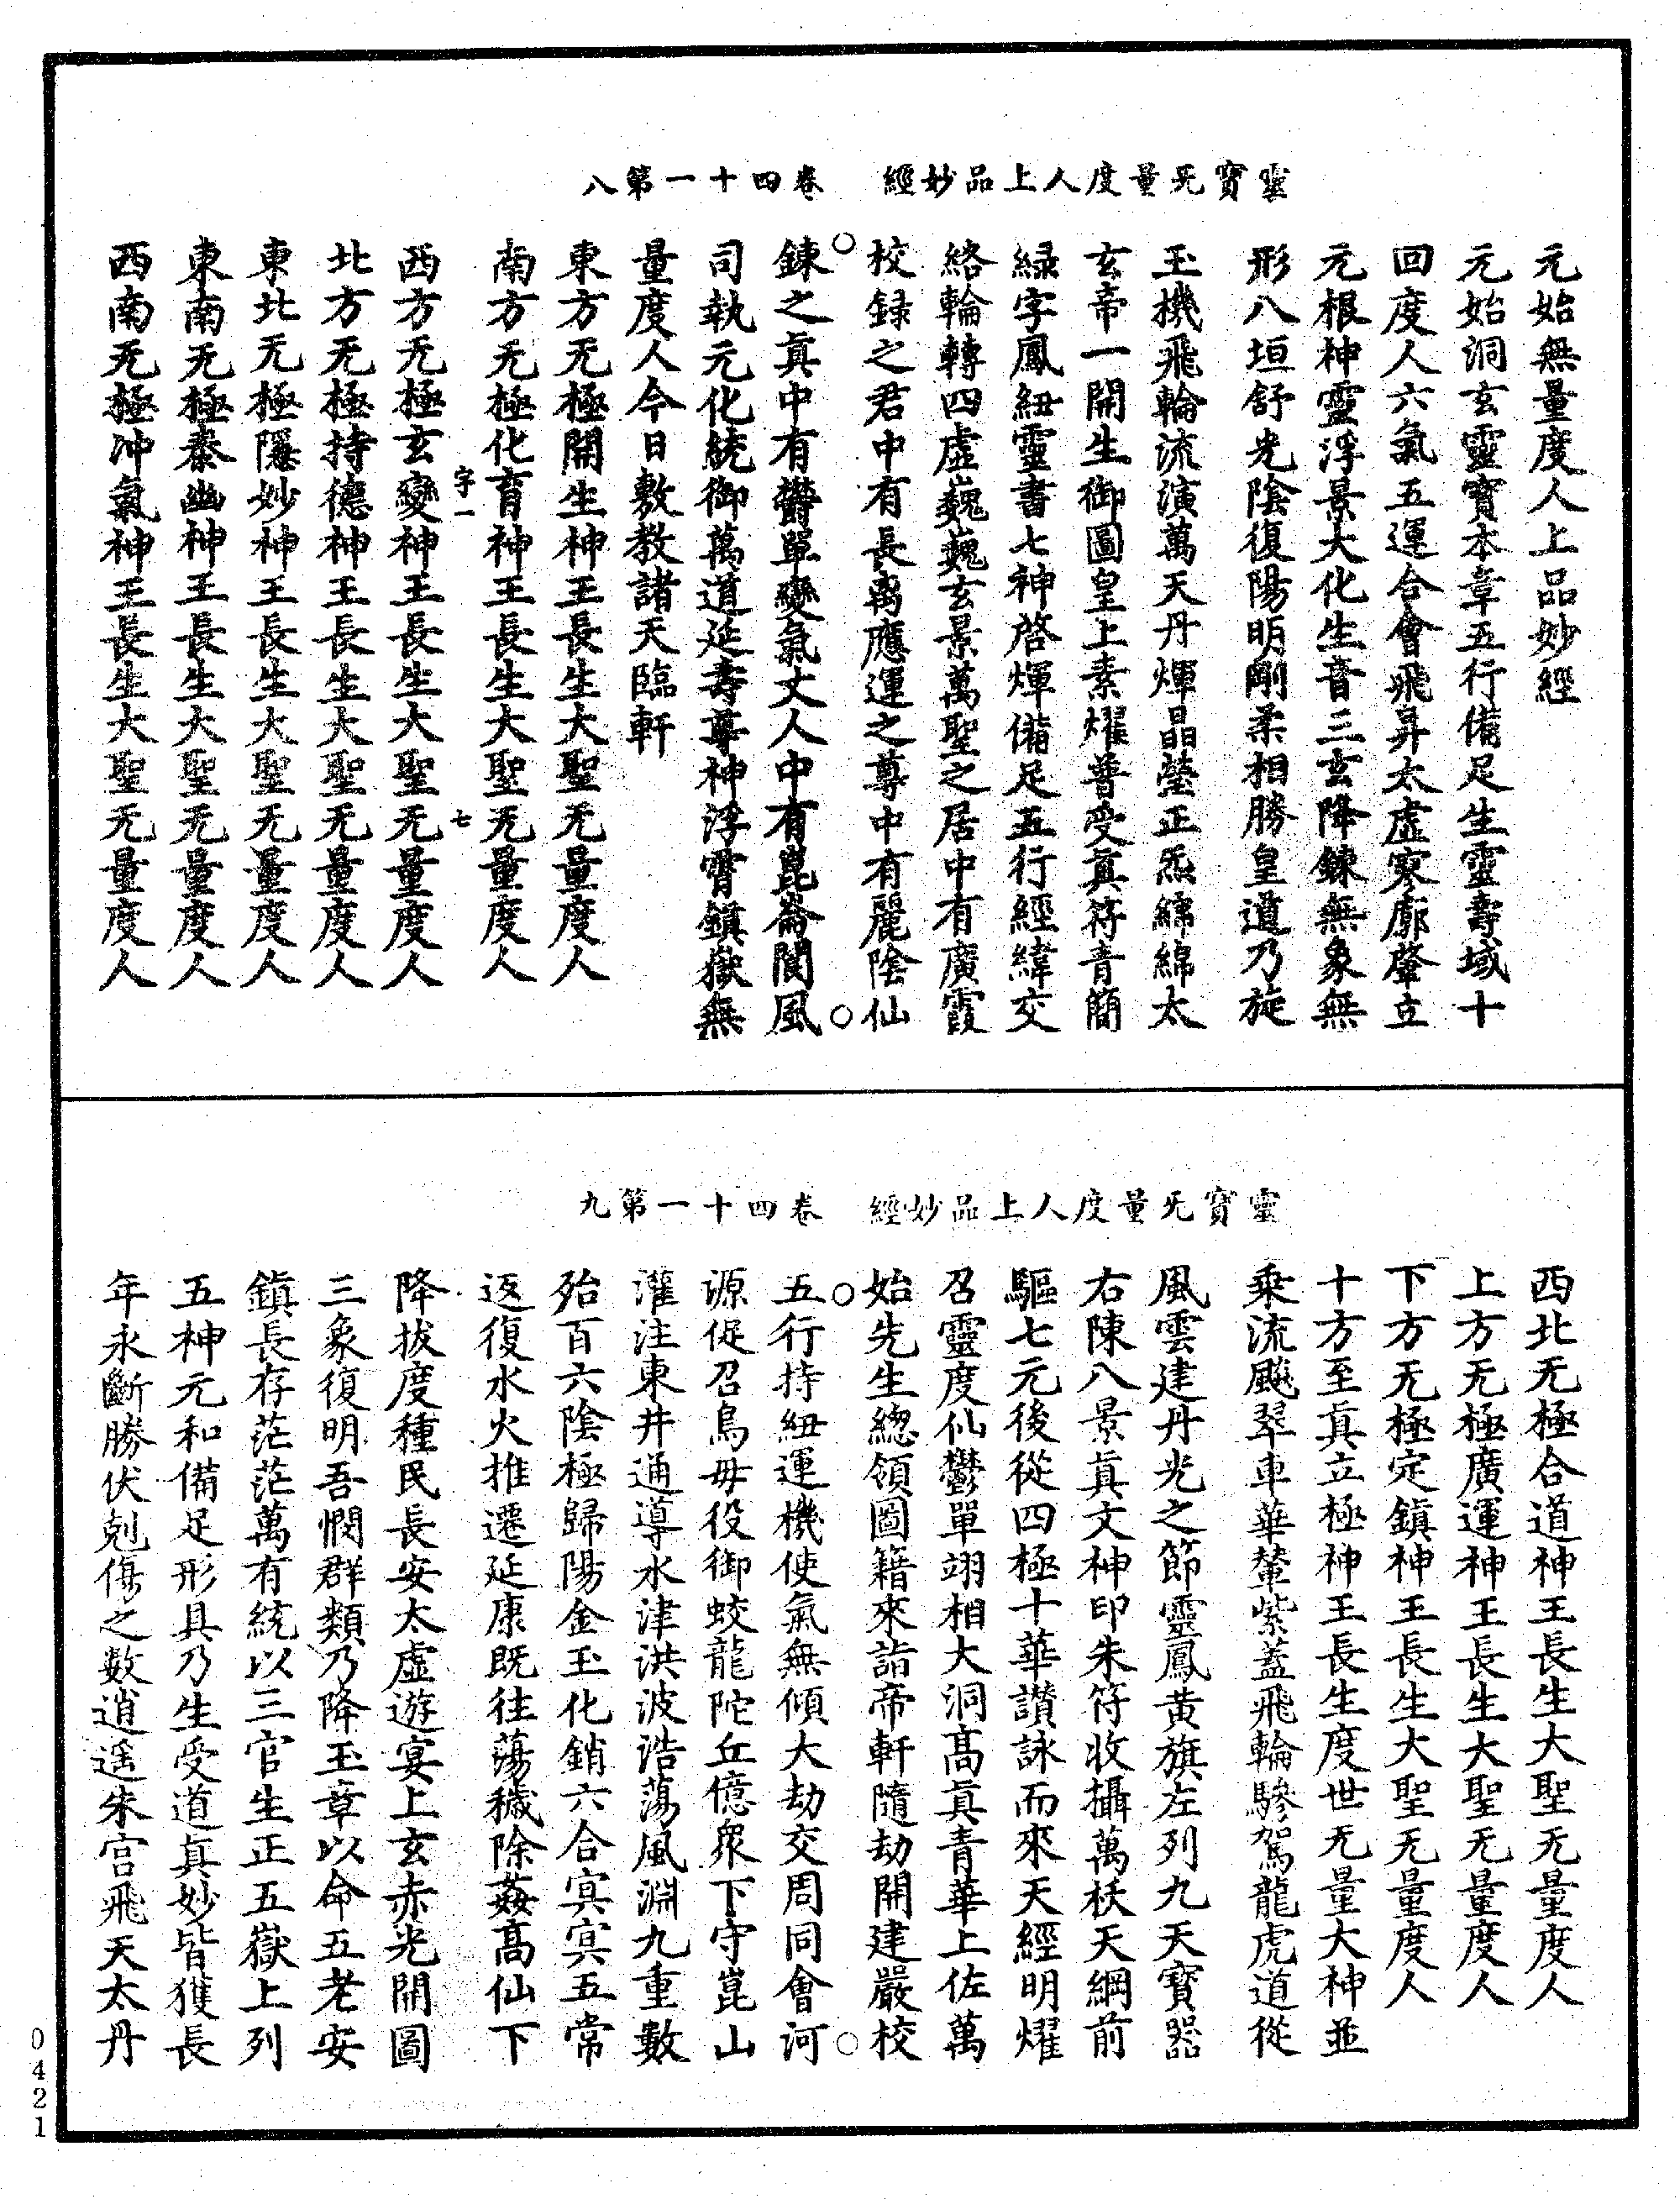 靈寶无量度人上品妙經　卷四十一第八
元始無量度人上品妙經
元始洞玄靈寶本章五行備足生靈壽域十
回度人六氣五運合會飛昇太虛寥廓肇立
元根神靈浮景大化生音三玄降鍊無象無
形八垣舒光陰復陽明剛柔相勝皇道乃旋
玉機飛輪流演萬天丹煇晶瑩正炁綿綿太
玄帝一開生御圖皇上素燿普受真符青簡
緑字鳳紐靈書七神啓煇備足五行經緯交
絡輪轉四虛巍巍玄景萬聖之居中有廣霞
校録之君中有長离應運之尊中有麗陰仙
鍊之真中有欝單變氣丈人中有崑崙閬風
司執元化統御萬道延壽尊神浮霄鎮嶽無
量度人今日敷教諸天臨軒
東方无極開生神王長生大聖无量度人
南方无極化育神王長生大聖无量度人
字一　七
西方无極玄變神王長生大聖无量度人
北方无極持德神王長生大聖无量度人
東北无極隱妙神王長生大聖无量度人
東南无極泰幽神王長生大聖无量度人
西南无極冲氣神王長生大聖无量度人
靈寶无量度人上品妙經　卷四十一第九
西北无極合道神王長生大聖无量度人
上方无極廣運神王長生大聖无量度人
下方无極定鎮神王長生大聖无量度人
十方至真立極神王長生度世无量大神並
乘流飈翠車華輦紫蓋飛輪驂駕龍虎道從
風雲建丹光之節靈鳳黃旗左列九天寶器
右陳八景真文神印朱符收攝萬祅天綱前
驅七元後從四極十華讚詠而來天經明燿
召靈度仙鬱單翊相大洞髙真青華上佐萬
始先生總領圖籍來詣帝軒隨劫開建嚴校
五行持紐運機使氣無傾大劫交周同會河
源促召鳥毋役御蛟龍陀丘億衆下守崑山
灌注東井通導水津洪波浩蕩風淵九重數
殆百六陰極歸陽金玉化銷六合㝠㝠五常
返復水火推遷延康既往蕩穢除姦髙仙下
降拔度種民長安太虛遊宴上玄赤光開圖
三象復明吾憫群類乃降玉章以命五老安
鎮長存茫茫萬有統以三官生正五嶽上列
五神元和備足形具乃生受道真妙皆獲長
年永斷勝伏剋傷之數逍遥朱宫飛天太丹
0421